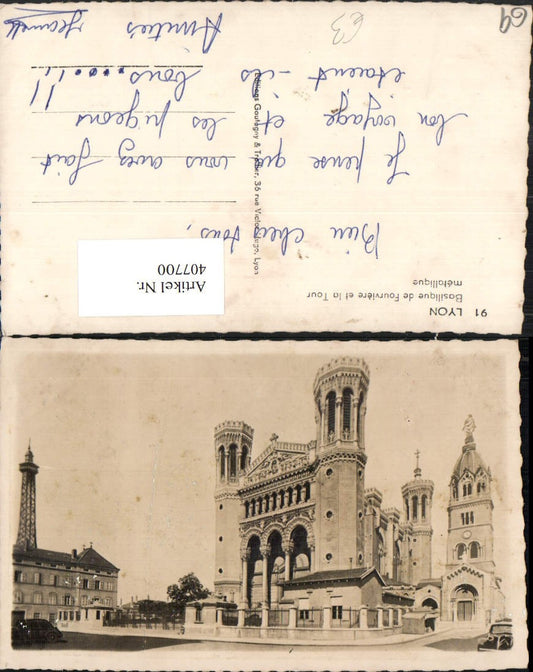 91 LYON
Basilique de Fourvière et la Tour
métallique
Bien chers tous,
Je pense que vous avez fait
bon voyage et les pigeons
étaient-ils bons.....!! !!
Amitiés
Jeannette
Editions Goutagny & 36 rue Victor-Hugo, Lyon
Artikel Nr.
407700
69
€3